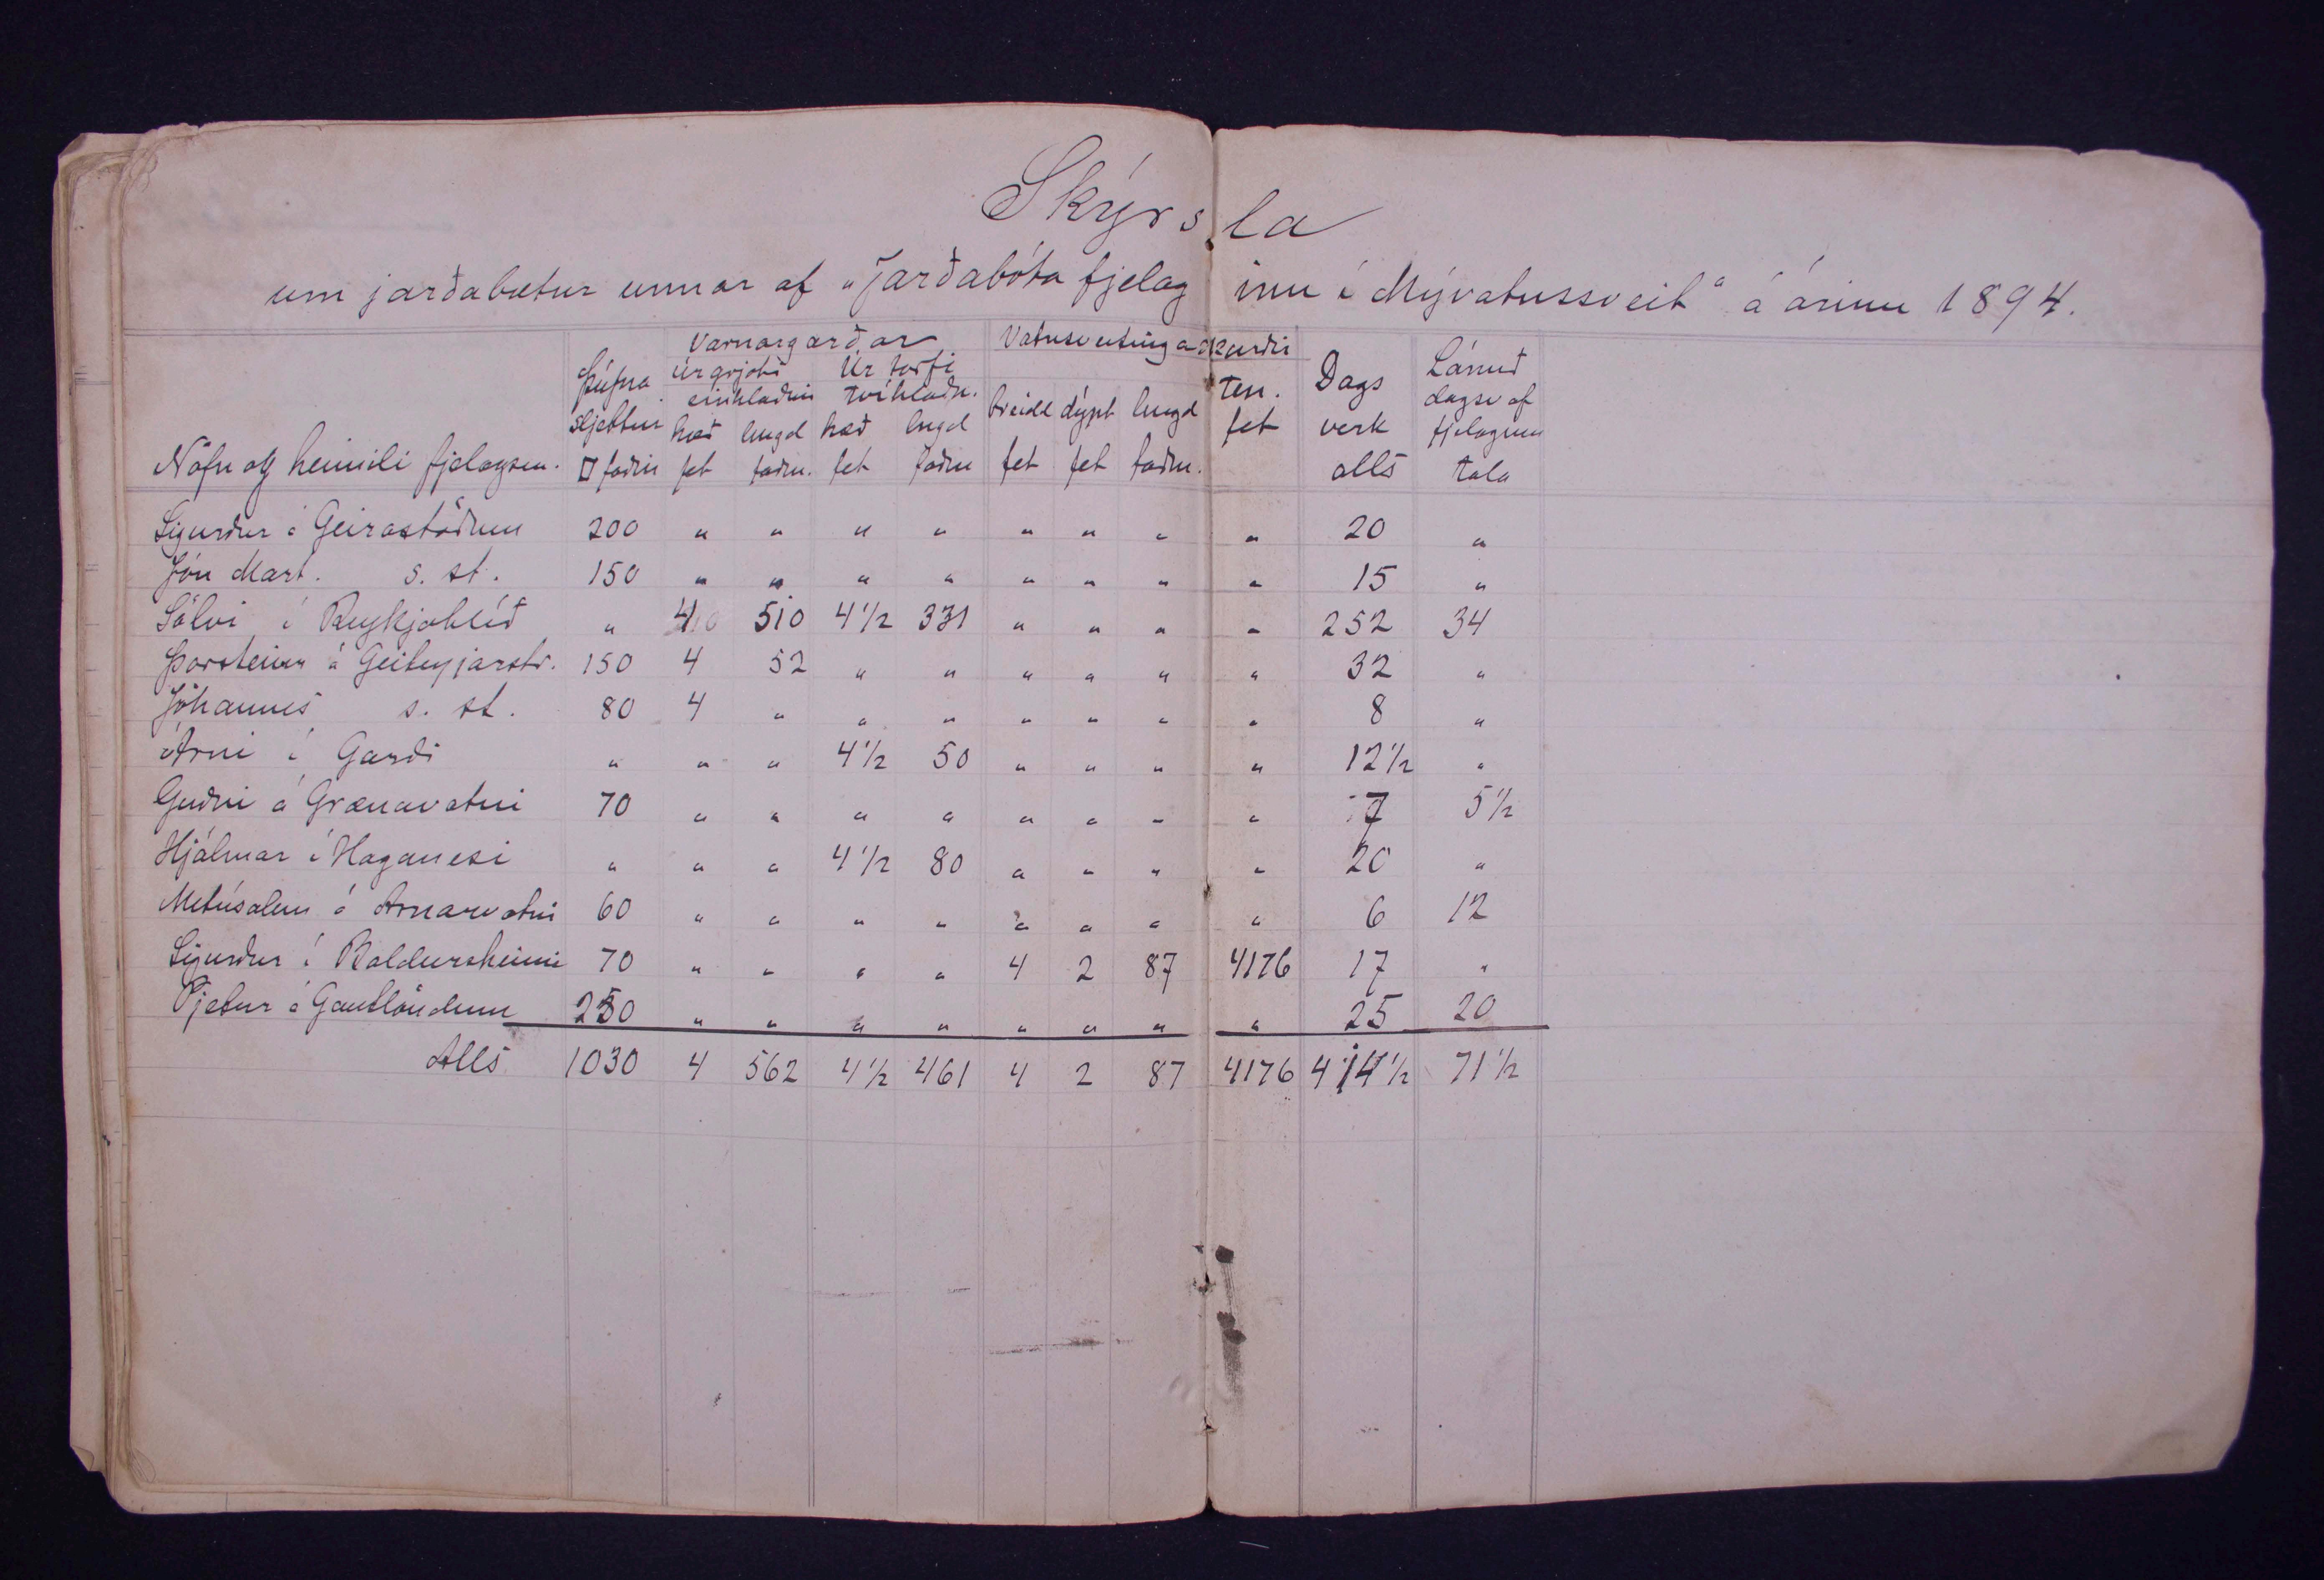 Skýrsla
um jarðabætur unnar af „Jarðabóta fjelaginu í Mývatnssveit“ á árinu 1894.
Nöfn og heimili fjelagsm. Þúfna sljettur □ faðm Varnargarðar Úr grjóti einhlaðnir hæð fet lengd faðm. Úr torfi tvíhlaðn. hæð fet lengd faðm Vatnsveitingaskurðir breidd fet dýpt fet lengd faðm. ten. fet Dags verk alls Lánuð dagsv af fjelaginu tala
Sigurður á Geirastöðum 200 " " " " " " " " 20 "
Jón Mart. s. st. 150 " " " " " " " " 15 "
Sölvi í Reykjahlíð " 4 510 4 1/2 331 " " " " 252 34
Þorsteinn á Geiteyjarstr. 150 4 52 " " " " " " 32 "
Jóhannes s. st. 80 4 " " " " " " " 8 "
Árni í Garði " " " 4 1/2 50 " " " " 12 1/2 "
Guðni á Grænavatni 70 " " " " " " " " 7 5 1/2
Hjálmar í Haganesi " " " 4 1/2 80 " " " " 20 "
Metúsalem á Arnarvatni 60 " " " " " " " " 6 12
Sigurður í Baldursheimi 70 " " " " 4 2 87 4176 17 "
Pjetur á Gautlöndum 250 " " " " " " " " 25 20
Alls 1030 4 562 4 1/2 461 4 2 87 4176 414 1/2 71 1/2